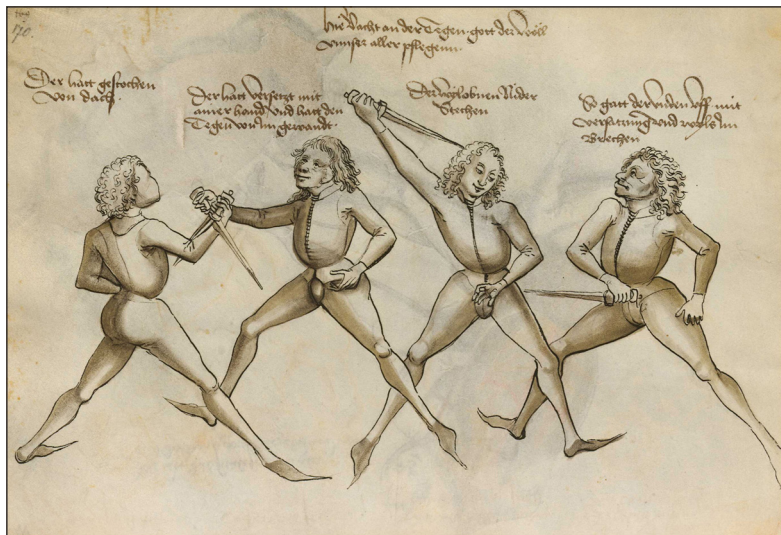 170.
hie vacht an der Tegen gott der wöll
vnnser aller pflegenn
Der hatt gestochen
von dach.
Der hatt versetzt mit
ainer hand vnd hatt den
Tegen von im gewandt.
Der von obnen Nider
Stechen
So gatt der vnden vff mit
versatzung vnd wyls im
Brechen